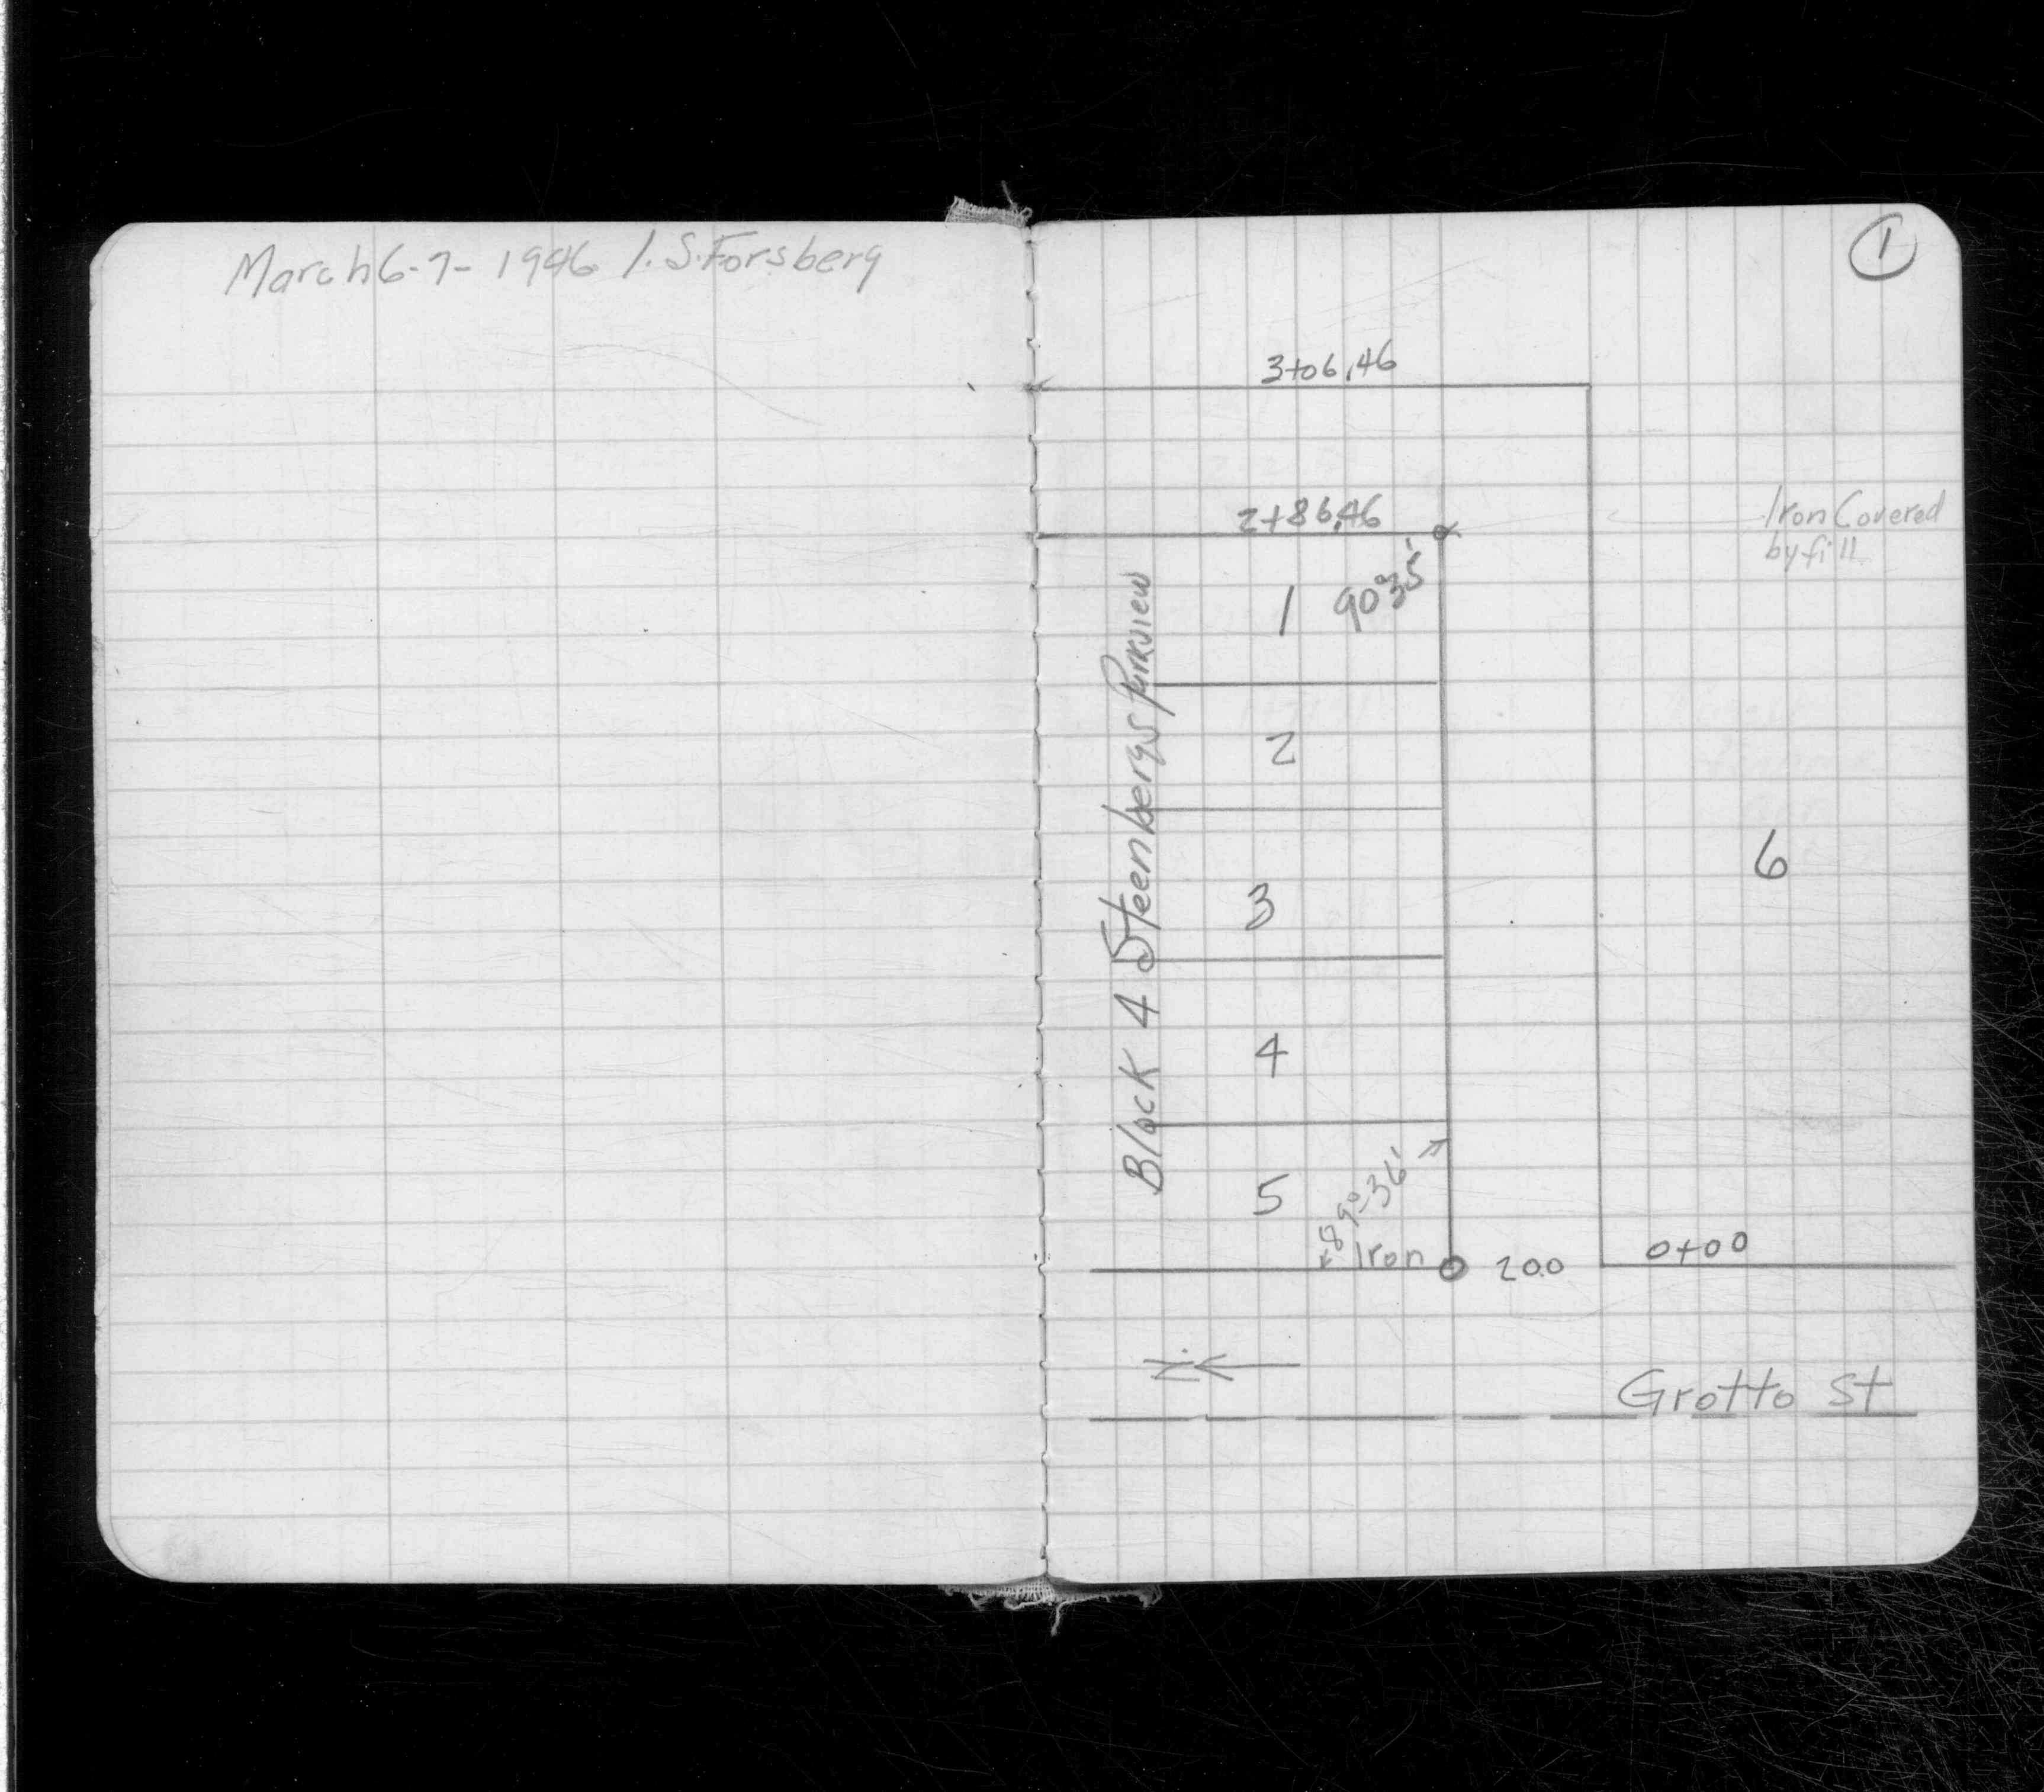 March 6-7- 1946 I. S. Forsberg
1
3+06.46
2+86.46
Iron Covered
by fill
1 90°35'
Block 4 Steenbergs Parkview
2
3
6
4
5
89°-36'
Iron
20.0
0+00
N
Grotto St